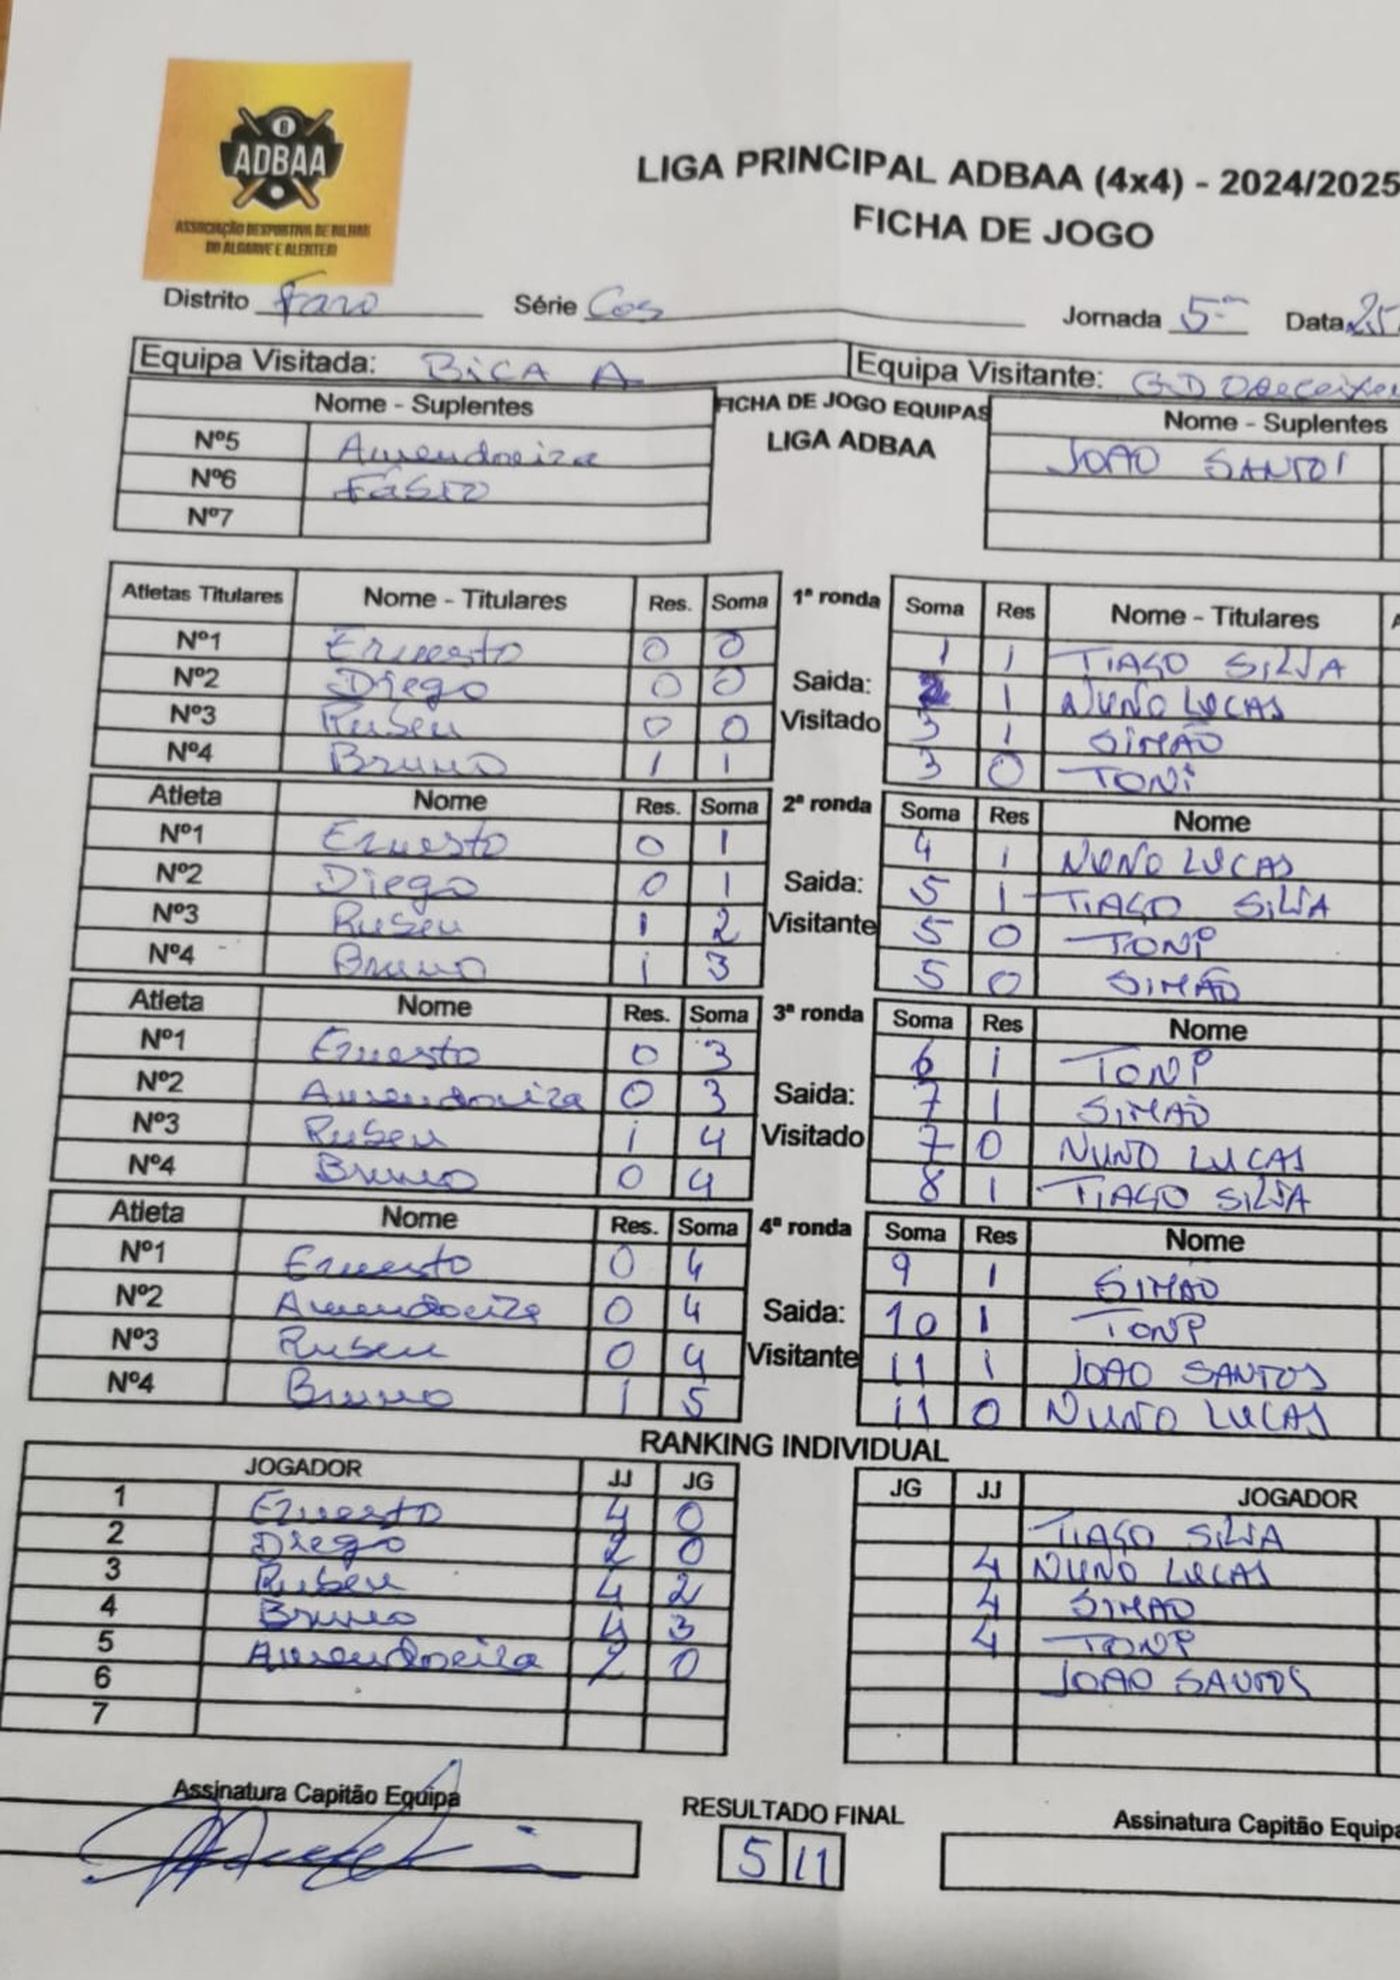 8
ADBAA
ASSOCIAÇÃO DESPORTIVA DE BILHAR
DO ALGARVE E ALENTEJO
LIGA PRINCIPAL ADBAA (4x4) - 2024/2025
FICHA DE JOGO
Distrito Faro Série Cos Jornada 5ª Data 25
Equipa Visitada: BICA A Equipa Visitante: GD
Nome - Suplentes FICHA DE JOGO EQUIPAS Nome - Suplentes
LIGA ADBAA
Nº5 Amendoeira JOAO SANTOS
Nº6 Fábio
Nº7
Atletas Titulares Nome - Titulares Res. Soma 1ª ronda Soma Res Nome - Titulares
Nº1 Ernesto 0 0 1 1 TIAGO SILVA
Nº2 Diego 0 0 Saida: 2 1 NUNO LUCAS
Nº3 Ruben 0 0 Visitado 3 1 SIMÃO
Nº4 Bruno 1 1 3 0 TONI
Atleta Nome Res. Soma 2ª ronda Soma Res Nome
Nº1 Ernesto 0 1 4 1 NUNO LUCAS
Nº2 Diego 0 1 Saida: 5 1 TIAGO SILVA
Nº3 Ruben 1 2 Visitante 5 0 TONI
Nº4 Bruno 1 3 5 0 SIMÃO
Atleta Nome Res. Soma 3ª ronda Soma Res Nome
Nº1 Ernesto 0 3 6 1 TONI
Nº2 Amendoeira 0 3 Saida: 7 1 SIMÃO
Nº3 Ruben 1 4 Visitado 7 0 NUNO LUCAS
Nº4 Bruno 0 4 8 1 TIAGO SILVA
Atleta Nome Res. Soma 4ª ronda Soma Res Nome
Nº1 Ernesto 0 4 9 1 SIMÃO
Nº2 Amendoeira 0 4 Saida: 10 1 TONI
Nº3 Ruben 0 4 Visitante 11 1 JOAO SANTOS
Nº4 Bruno 1 5 11 0 NUNO LUCAS
RANKING INDIVIDUAL
JOGADOR JJ JG JG JJ JOGADOR
1 Ernesto 4 0 TIAGO SILVA
2 Diego 2 0 4 NUNO LUCAS
3 Ruben 4 2 4 SIMAO
4 Bruno 4 3 4 TONI
5 Amendoeira 2 0 JOAO SANTOS
6
7
Assinatura Capitão Equipa RESULTADO FINAL Assinatura Capitão Equipa
5 11